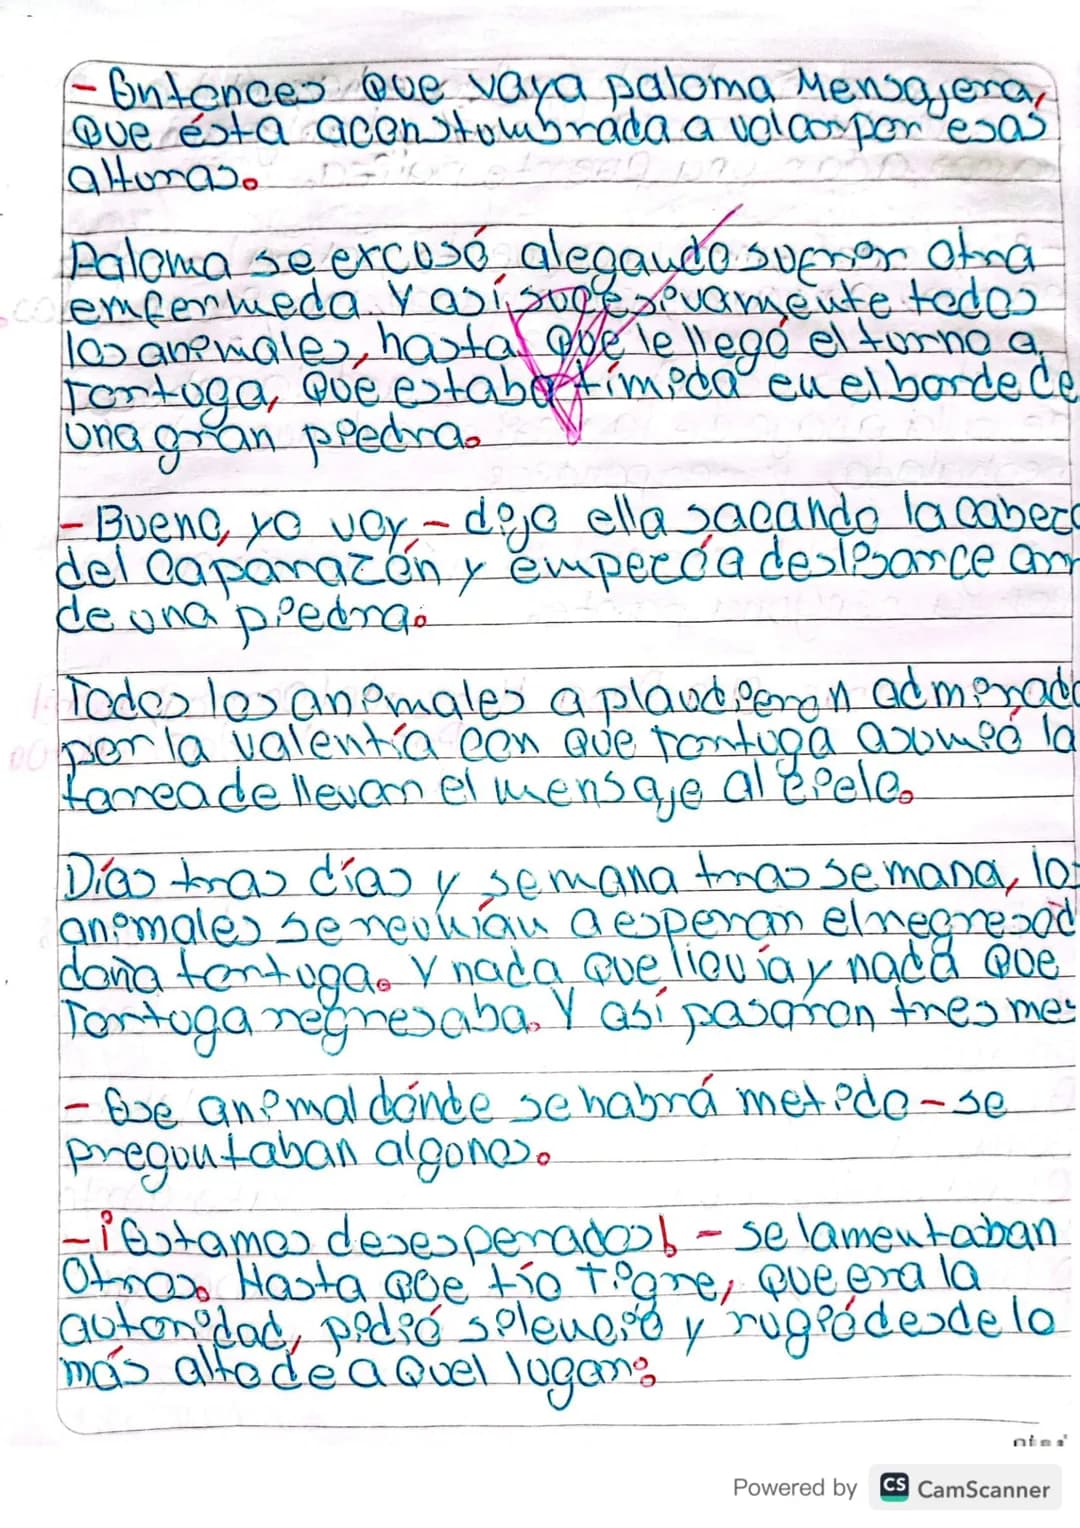 - Entonces Que vaya paloma Mensajera,
Que ésta aconstolumbrada a volar por esas
alturas.
Paloma se excusó, alegando sufrir otra
enfermeda. Y así, sucesivamente todos
los animales, hasta que le llegó el turno a
Tortuga, Que estaba tímida en el borde de
una gran piedra.
- Bueno, yo voy - dijo ella sacando la cabeza
del Caparazón y empezóa deslisarce arr
de una piedra.
Todos los animales aplaudieron admirado
por la valentía con Que tortuga asumió la
tarea de llevar el mensaje al cielo.
Días tras días y semana tras semana, los
animales se reunían a esperar el regreso d
doña tortuga. Y nada Que llovía y nada Que
Tortuga regresaba. Y así pasaron tres mes
- Ese animal dónde se habrá metido - se
preguntaban algonos.
- ¡Estamos desesperados! - se lamentaban
Otros. Hasta Que tío Tigre, que era la
autoridad, pidió silencio y rugió desde lo
más alto de aquel lugar:
Powered by CS CamScanner